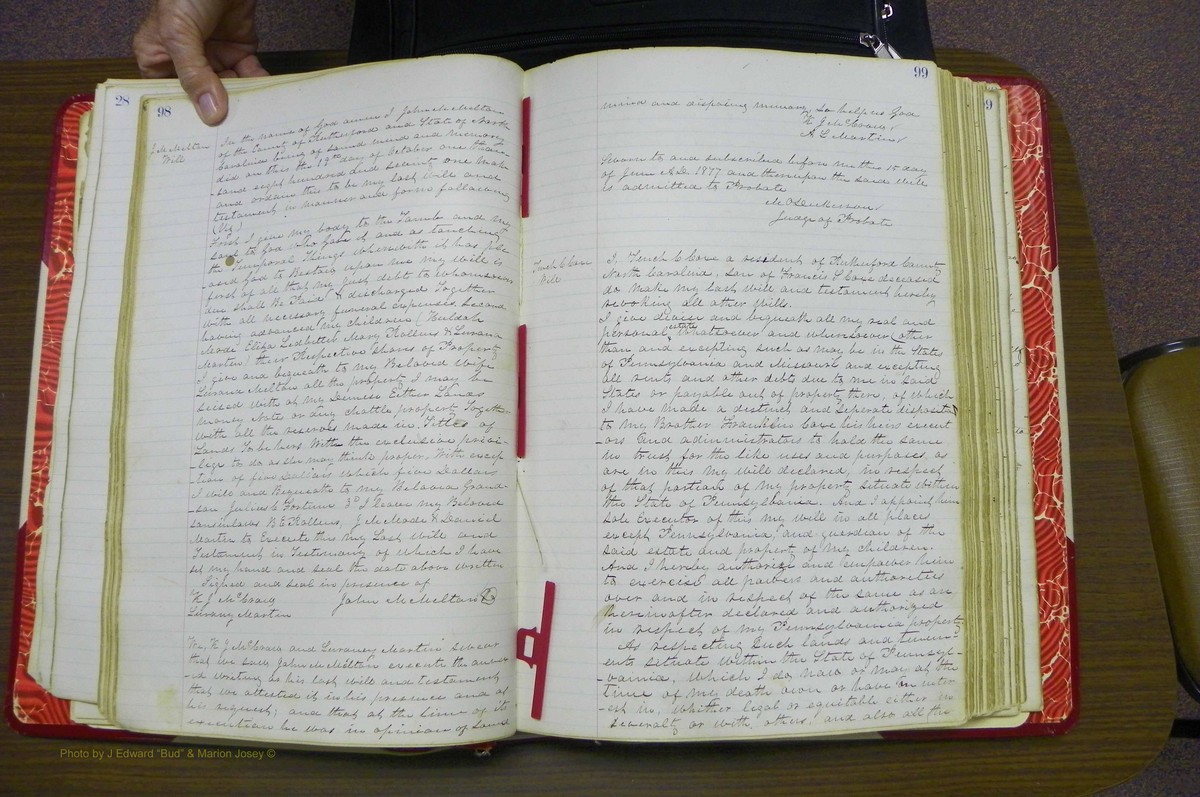 28
98
J McMelton
Will
In the name of God amen I John McMelton
of the County of Rutherford and State of North
Carolina being of sound mind and memory
did on this the 19th day of October one thou-
-sand eight hundred and seventy one make
and ordain this to be my last will and
testament in manner and form following
(Viz)
First I give my body to the Tomb and my
soul to God who gave it and as touching
the Temporal Things wherewith it has ple
-ased God to Bestow upon me my will is
first of all that my Just debts to whomsoever
due shall Be Paid & discharged Together
with all necessary funeral expenses. Second
having advanced my children (Huldah
Mode Eliza Ledbetter Mary Rollins & Lurana
Martin) their Respective Shares of Property
I give and bequeath to my Beloved Wife
Lurana Melton all the property I may be
sessed with at my Demise Either Lands
money Notes or any chattle property Together
with all the reserves made in Titles of
Lands To be hers With the exclusive privi-
-lege to do as she may think proper. With excep
-tion of five Dollars Which five Dollars
I will and Bequeath to my Beloved Grand-
son Julius C Fortune 3d I leave my Beloved
sons in laws B E Rollins, J M Mode & Daniel
Martin to Execute this my Last will and
Testament in Testimony of which I have
set my hand and seal the date above written
Signed and seal in presence of
H J McCraw John McMelton
Lurany Martin
We, H J McCraw and Luraney Martin swear
that we saw John McMelton execute the annex-
-d writing as his last will and testament
that we attested it in his presence and at
his request; and that at the time of its
execution he was in opinion of sound
99
mind and disposing memory So help us God
H J McCraw
A L Martin
Sworn to and subscribed before me this 15 day
of June A.D. 1877 and thereupon the said will
is admitted to Probate
M O Dickerson
Judge of Probate
Tench C Coxe
Will
I, Tench C Coxe a resident of Rutherford County
North Carolina, Son of Francis S Coxe deceased
do make my last will and testament hereby
revoking all other wills.
I give devise and bequeath all my real and
personal estate whatsoever and wheresoever (other
than and excepting such as may be in the States
of Pennsylvania and Missouri and excepting
all rents and other debts due to me in said
States or payable out of property there, of which
I have made a distinct and Seperate disposition)
to my Brother Franklin Coxe his heirs execut
-ors and administrators to hold the same
in trust for the like uses and purposes, as
are in this my will declared, in respect
of that part of my property situate within
the State of Pennsylvania. And I appoint him
Sole Executor of this my will in all places
except Pennsylvania, and guardian of the
said estate and property of my children.
And I hereby authorize and empower him
to exercise all powers and authorities
over and in respect of the same as are
hereinafter declared and authorized
in respect of my Pennsylvania property
As respecting such lands and tenem-
-ents situate within the State of Pennsyl-
-vania, which I do now or may at the
time of my death own or have an inter
-est in, whether legal or equitable either in
severalty or with others, and also all the
Photo by J Edward "Bud" & Marion Josey ©